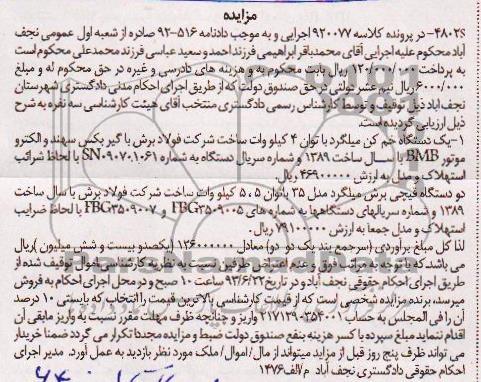 مزایده
۴۸۰۲S- در پرونده کلاسه ۹۲۰۰۷۷ اجرایی و به موجب دادنامه ۵۱۶-۹۲ صادره از شعبه اول عمومی نجف
آباد محکوم علیه اجرایی آقای محمدباقر ابراهیمی فرزند احمد و سعید عباسی فرزند محمدعلی محکوم است
به پرداخت ریال بابت محکوم به و هزینه های دادرسی و غیره در حق محکوم له و مبلغ
۶/۰۰۰/۰۰۰ ریال نیم عشر دولتی در حق صندوق دولت که از طریق اجرای احکام مدنی دادگستری شهرستان
نجف اباد ذیل توقیف و توسط کارشناس رسمی دادگستری منتخب آقای هیئت کارشناسی سه نفره به شرح
ذیل ارزیابی گردیده است.
۱- یک دستگاه خم کن میلگرد با توان ۴ کیلو وات ساخت شرکت فولاد برش با گیر بکس سهند و الکترو
موتور BMB با سال ساخت ۱۳۸۹ و شماره سریال دستگاه به شماره SN۰۹۰۷۰۱۰۶۱ با لحاظ شرایب
استهلاک و مدل به ارزش ۴۶۹۰۰۰۰۰ریال.
دو دستگاه قیچی برش میلگرد مدل ۳۵ باتوان ۵.۵ کیلو وات ساخت شرکت فولاد برش با سال ساخت
۱۳۸۹ و شماره سریالهای دستگاهها به شماره های FBG۳۵۰۹۰۰۵ و FBG۳۵۰۹۰۰۷ با لحاظ ضرایب
استهلاک و مدل جمعا به ارزش ۷۹۱۰۰۰۰۰ ریال.
لذا کل مبلغ برآوردی (سرجمع بند یک دو دو) معادل ۱۲۶۰۰۰۰۰۰ (یکصدو بیست و شش میلیون )ریال
می باشد که با توجه به مراتب فوق و عدم اعتراض طرفین نسبت به نظریه کارشناسی اموال توقیف شده از
طریق اجرای احکام حقوقی نجف آباد و در تاریخ ۹۳/۶/۲۲ ساعت ۱۰ صبح و در محل اجرای احکام به فروش
میرسد، برنده مزایده شخصی است که از قیمت کارشناسی بالاترین قیمت را انتخاب که بایستی ۱۰ درصد
آن را فی المجلس به حساب ۲۱۷۱۲۹۰۳۵۴۰۰۱ واریز و چنانچه ظرف مهلت مقرر نسبت به واریز مابقی آن
اقدام ننماید مبلغ سپرده با کسر هزینه بنفع صندوق دولت ضبط و مزایده مجددا تکرار می گردد ضمنا خریدار
می تواند ظرف پنج روز قبل از مزاید میتواند از مال/ اموال/ ملک مورد نظر بازدید به عمل آورد. مدیر اجرای
احکام حقوقی دادگستری نجف آباد م/الف۱۴۷۶